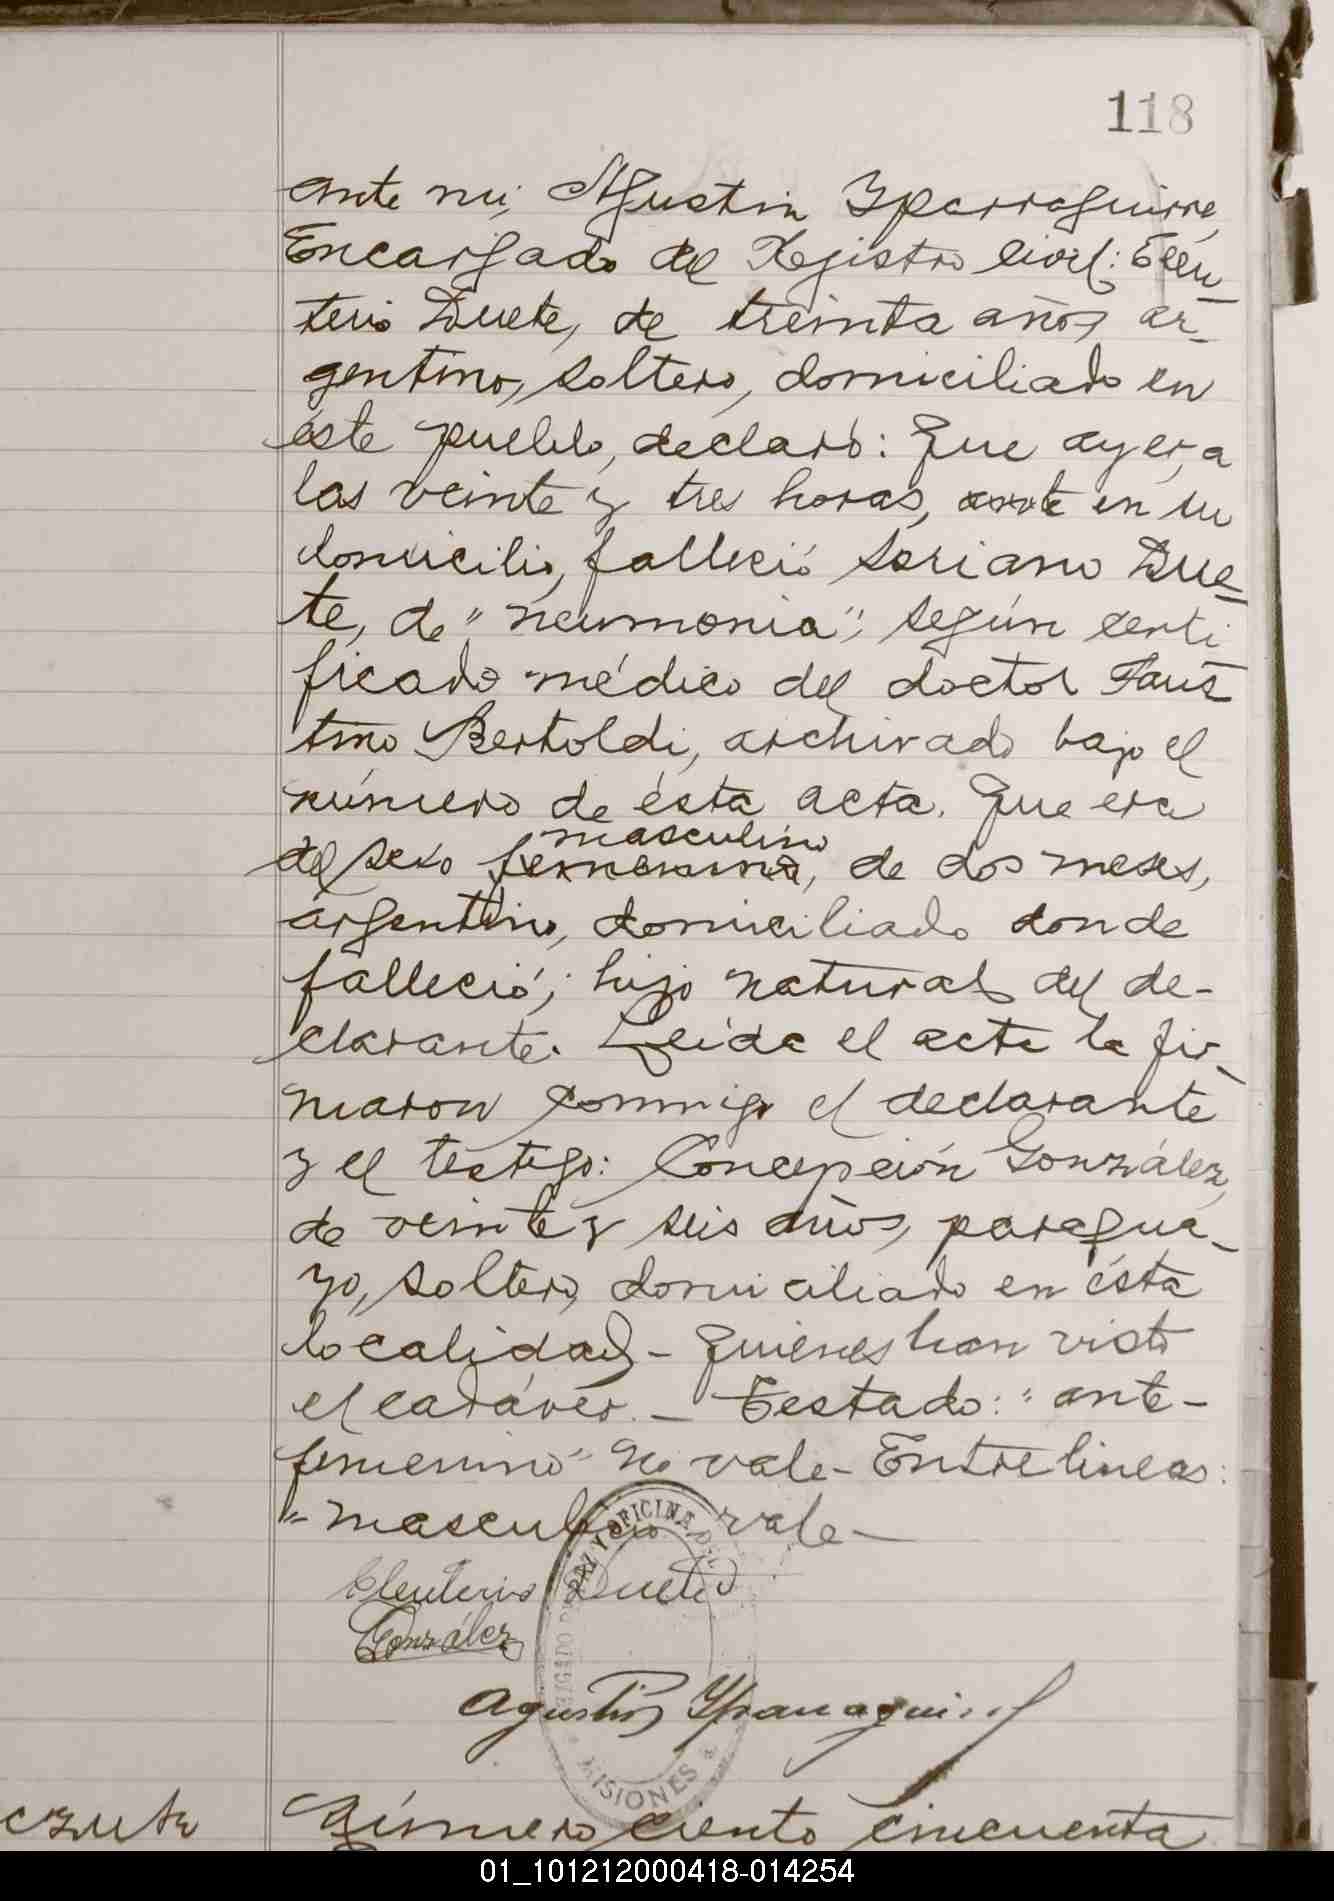 118
ante mi, Agustin Yparraguirre,
Encargado del Registro civil: Eleu-
terio Duete, de treinta años, ar-
gentino, soltero, domiciliado en
éste pueblo, declaró: Que ayer, a
las veinte y tres horas, ante en su
domicilio, falleció Soriano Due-
te, de "neumonia", según certi
ficado médico del doctor Faus-
tino Bertoldi, archivado bajo el
número de ésta acta. Que era
masculino
del sexo femenino, de dos meses,
argentino, domiciliado donde
falleció; hijo natural del de-
clarante. Leida el acta la fir-
maron conmigo el declarante
y el testigo: Concepción González,
de veinte y seis años, paragua-
yo, soltero, domiciliado en ésta
localidad - quienes han visto
el cadáver. - Testado: "ante-
femenino" no vale - Entre lineas:
"masculino vale -
Eleuterio Duete
González
Agustin Yparraguirre
PAZ Y OFICINA DEL
MISIONES
Número ciento cincuenta
01_101212000418-014254